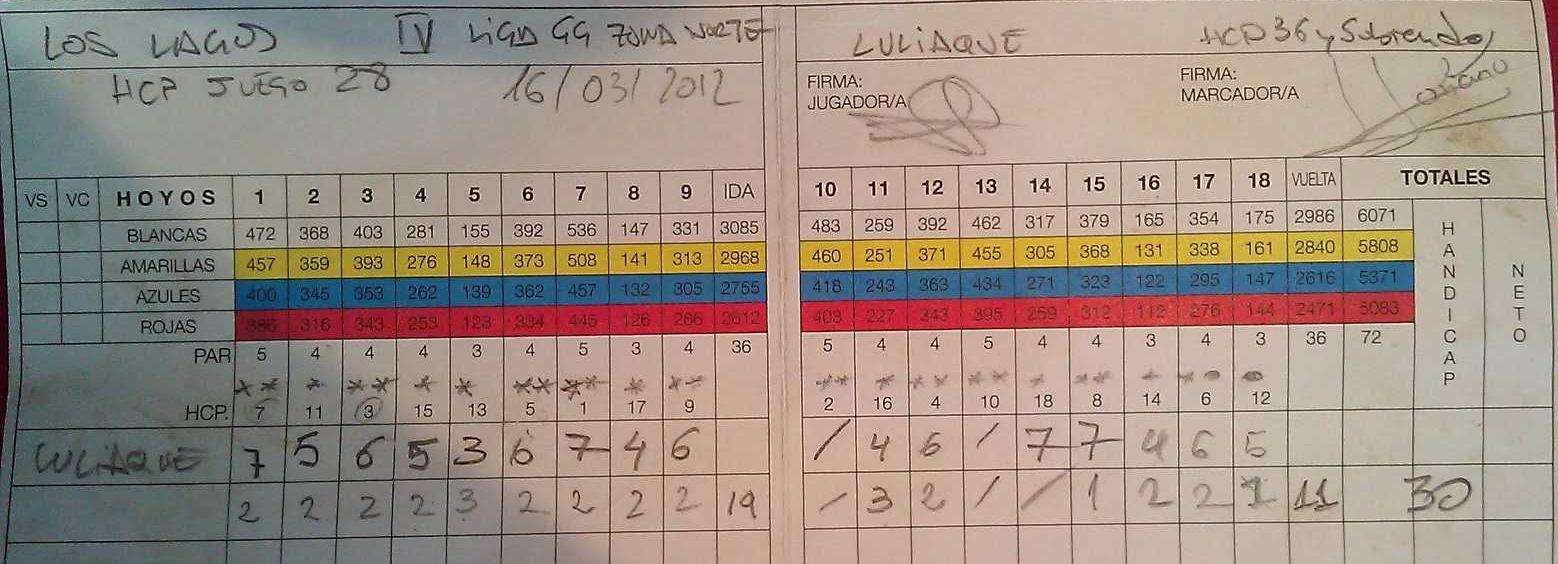 LOS LAGOS IV LIGA GG ZONA NORTE LULIAQUE HCP 36 y Sobrendo,
HCP JUEGO 28 16/03/2012 FIRMA: JUGADOR/A FIRMA: MARCADOR/A
VS VC HOYOS 1 2 3 4 5 6 7 8 9 IDA 10 11 12 13 14 15 16 17 18 VUELTA TOTALES
BLANCAS 472 368 403 281 155 392 536 147 331 3085 483 259 392 462 317 379 165 354 175 2986 6071 HANDICAP NETO
AMARILLAS 457 359 393 276 148 373 508 141 313 2968 460 251 371 455 305 368 131 338 161 2840 5808
AZULES 400 345 353 262 139 362 457 132 305 2755 418 243 363 434 271 323 122 295 147 2616 5371
ROJAS 386 316 343 253 123 334 445 126 286 2612 403 227 343 395 259 312 112 276 144 2471 5083
PAR 5 4 4 4 3 4 5 3 4 36 5 4 4 5 4 4 3 4 3 36 72
** * ** * * ** ** * ** ** * ** ** * ** * * 
HCP. 7 11 3 15 13 5 1 17 9 2 16 4 10 18 8 14 6 12
LULIAQUE 7 5 6 5 3 6 7 4 6 / 4 6 / 7 7 4 6 5
2 2 2 2 3 2 2 2 2 19 / 3 2 / / 1 2 2 1 11 30